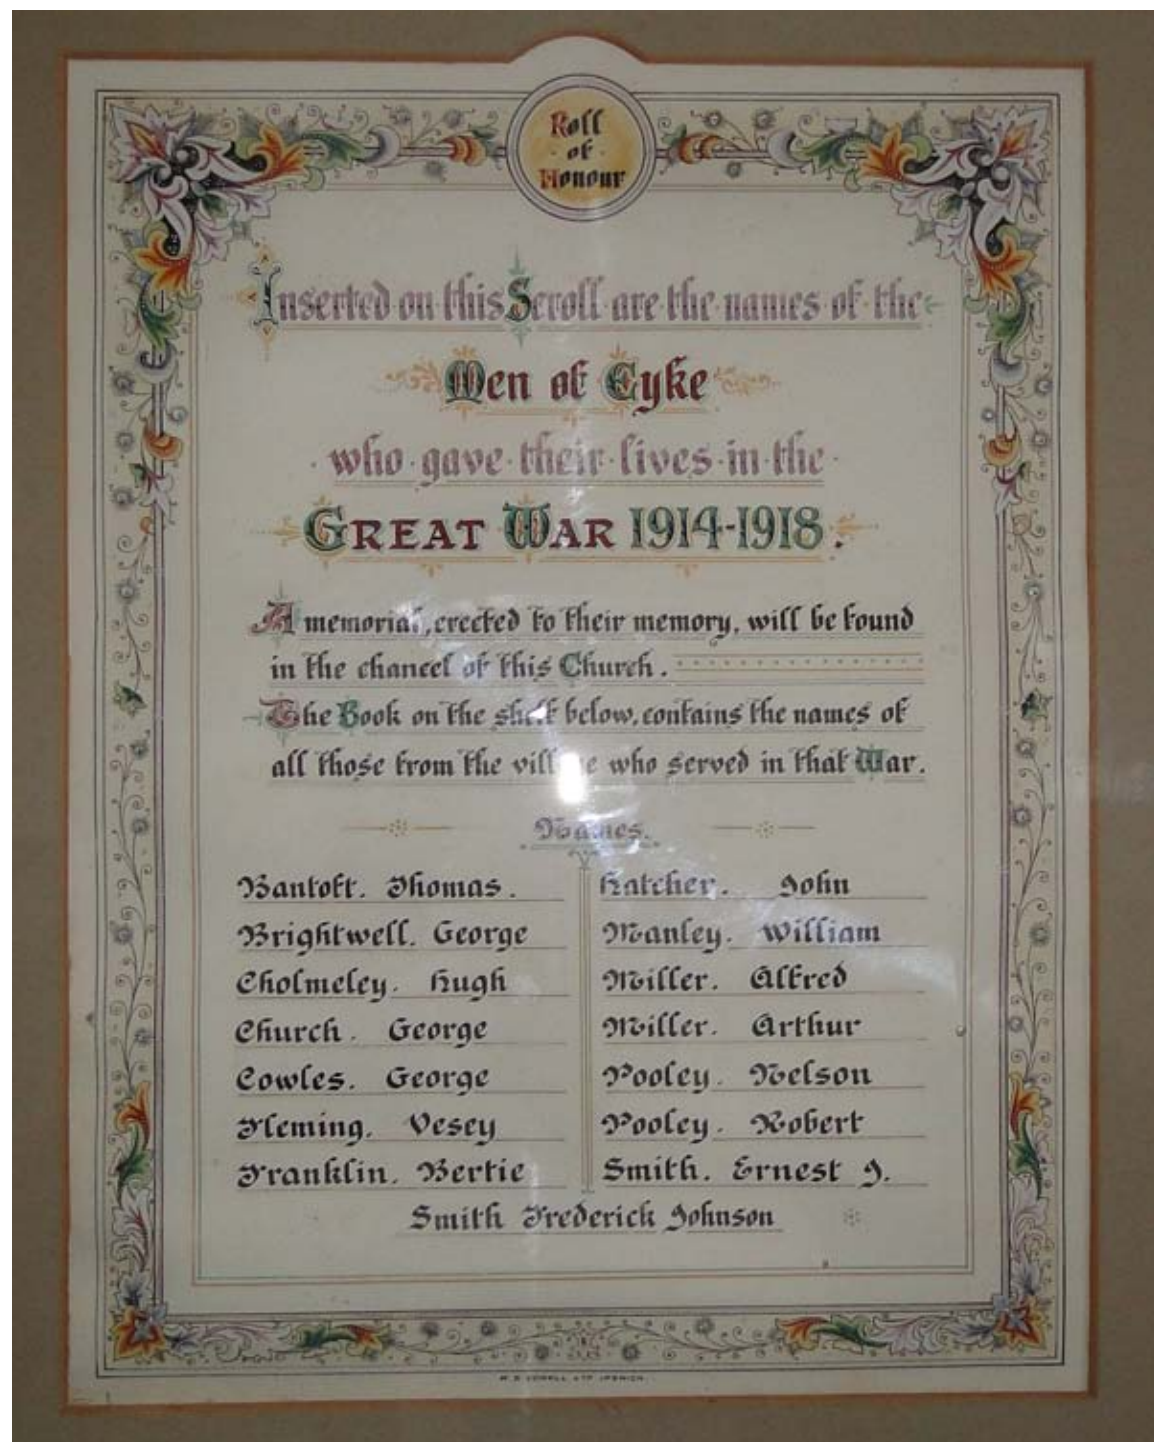 Roll
· of ·
Honour
Inserted · on · this Scroll · are · the · names of · the
Men of Eyke
· who · gave · their · lives · in · the ·
GREAT WAR 1914-1918 .
A memorial, erected to their memory, will be found
in the chancel of this Church.
The Book on the shelf below, contains the names of
all those from the village who served in that War.
Names.
Bantoft. Thomas.
Brightwell. George
Cholmeley. Hugh
Church. George
Cowles. George
Fleming. Vesey
Franklin. Bertie
Hatcher. John
Manley. William
Miller. Alfred
Miller. Arthur
Pooley. Nelson
Pooley. Robert
Smith. Ernest J.
Smith Frederick Johnson
W. S. COWELL LTD IPSWICH.